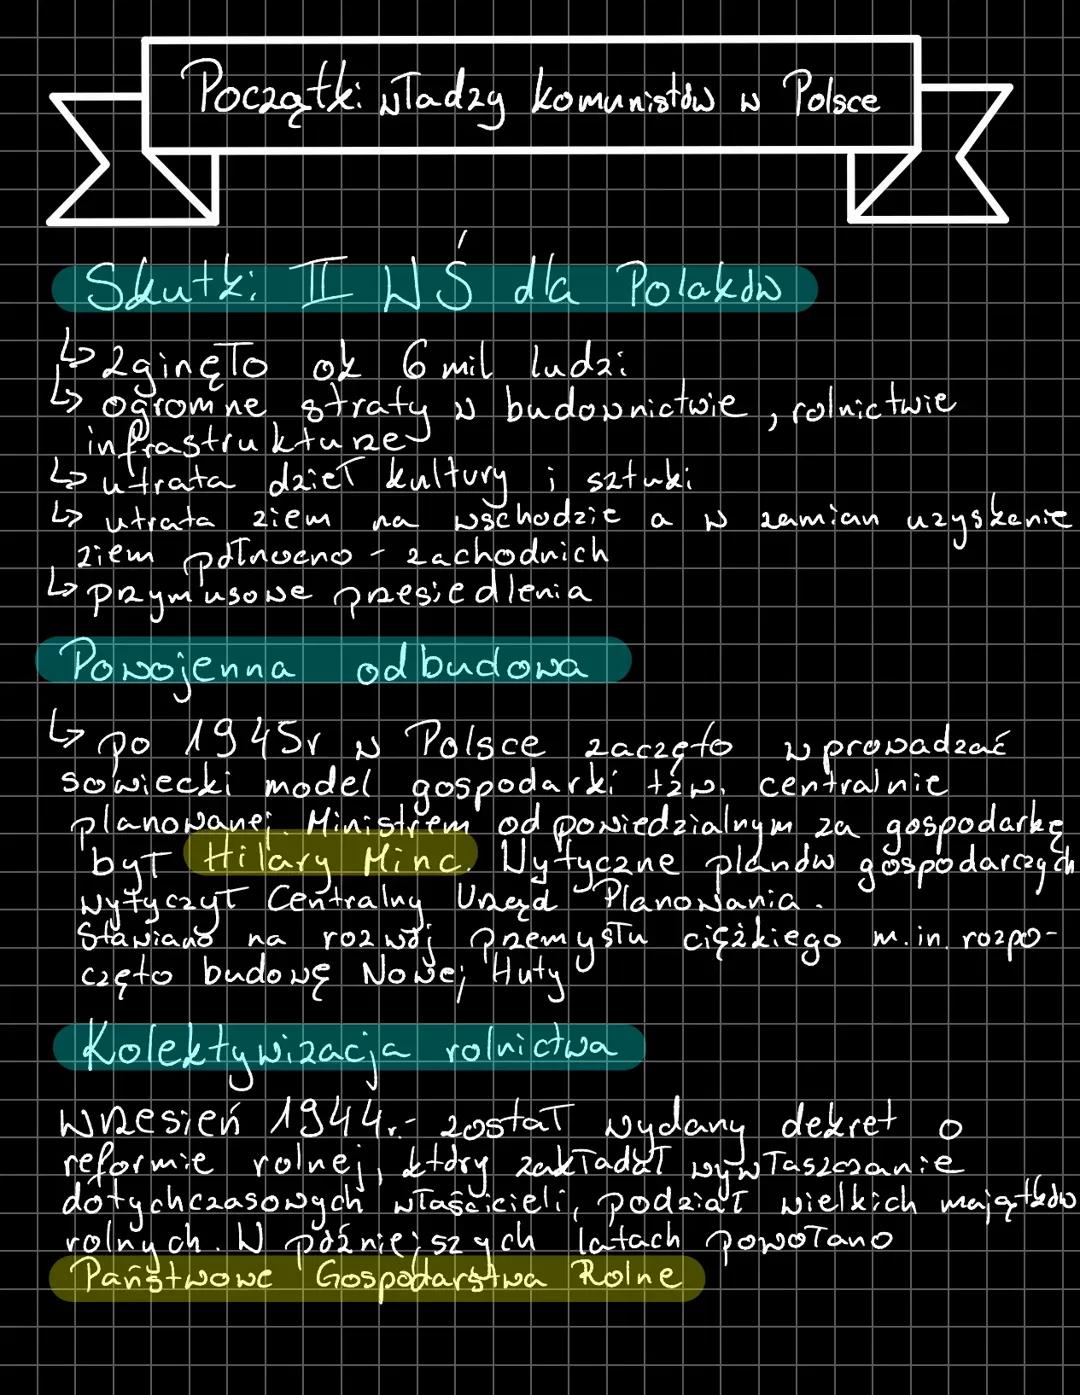 Początki władzy komunistów w Polsce
Skutki II WŚ dla Polaków
↳ zginęło ok 6 mil ludzi
↳ ogromne straty w budownictwie, rolnictwie
infrastrukturze
↳ utrata dzieł kultury i sztuki
↳ utrata ziem na wschodzie a w zamian uzyskanie
ziem północno - zachodnich
↳ przymusowe przesiedlenia
Powojenna odbudowa
↳ po 1945r w Polsce zaczęto wprowadzać
sowiecki model gospodarki tzw. centralnie
planowanej. Ministrem odpowiedzialnym za gospodarkę
był Hilary Minc. Wytyczne planów gospodarczych
wytyczył Centralny Urząd Planowania.
Stawiano na rozwój przemysłu ciężkiego m.in. rozpo-
częto budowę Nowej Huty
Kolektywizacja rolnictwa
wrzesień 1944r.- został wydany dekret o
reformie rolnej, który zakładał wywłaszczanie
dotychczasowych właścicieli, podział wielkich majątków
rolnych. W późniejszych latach powołano
Państwowe Gospodarstwa Rolne